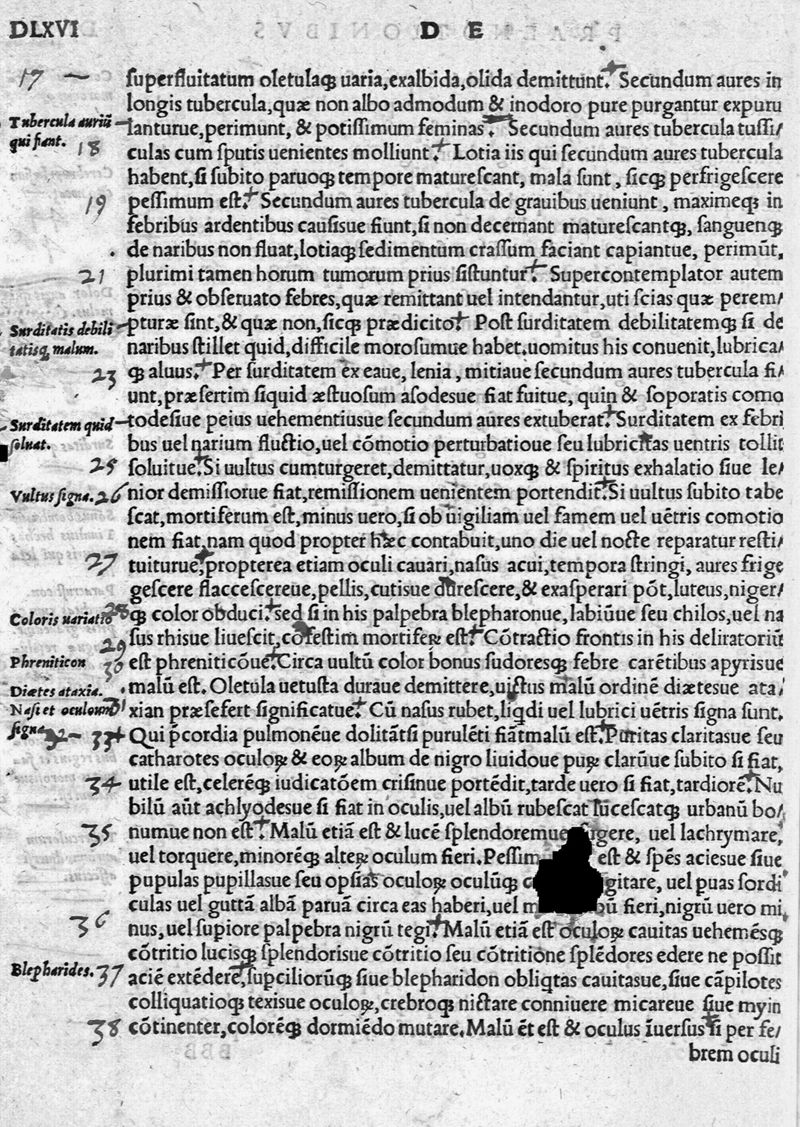 DLXVI
D E
17 superfluitatum oletulaqȝ uaria,exalbida,olida demittunt. Secundum aures in
longis tubercula,quæ non albo admodum & inodoro pure purgantur expuru
Tubercula auriũ lanturue,perimunt, & potissimum feminas. Secundum aures tubercula tussi/
qui fiant. 18 culas cum sputis uenientes molliunt. Lotia iis qui secundum aures tubercula
habent,si subito paruoqȝ tempore maturescant, mala sunt, sicqȝ perfrigescere
19 pessimum est. Secundum aures tubercula de grauibus ueniunt, maximeqȝ in
febribus ardentibus causisue fiunt,si non decernant maturescantqȝ, sanguenqȝ
de naribus non fluat,lotiaqȝ sedimentum crassum faciant capiantue, perimũt,
21 plurimi tamen horum tumorum prius sistuntur. Supercontemplator autem
prius & obseruato febres,quæ remittant uel intendantur,uti scias quæ perem/
Surditatis debili pturæ sint,& quæ non,sicqȝ prædicito. Post surditatem debilitatemqȝ si de
tatisqȝ malum. naribus stillet quid,difficile morosumue habet.uomitus his conuenit,lubrica/
23 qȝ aluus. Per surditatem ex eaue, lenia, mitiaue secundum aures tubercula fi/
unt,præsertim siquid æstuosum asodesue fiat fuitue, quin & soporatis como
Surditatem quid todesiue peius uehementiusue secundum aures extuberat. Surditatem ex febri
soluat. bus uel narium fluctio,uel cõmotio perturbatioue seu lubricitas uentris tollit
25 soluitue. Si uultus cumturgeret,demittatur,uoxqȝ & spiritus exhalatio siue le/
Vultus signa. 26 nior demissiorue fiat,remissionem uenientem portendit. Si uultus subito tabe
scat,mortiferum est,minus uero,si ob uigiliam uel famem uel uẽtris comotio
nem fiat,nam quod propter hæc contabuit,uno die uel nocte reparatur resti/
27 tuiturue,propterea etiam oculi cauari,nasus acui,tempora stringi, aures frige
gescere flaccescereue,pellis, cutisue durescere,& exasperari põt,luteus,niger/
Coloris uariatio 28 qȝ color obduci. sed si in his palpebra blepharonue,labiũue seu chilos,uel na
29 sus rhisue liuescit,cõfestim mortiferꝝ est. Cõtractio frontis in his deliratoriũ
Phreniticon 30 est phreniticõue. Circa uultũ color bonus sudoresqȝ febre carẽtibus apyrisue
Diætes ataxia. malũ est. Oletula uetusta duraue demittere,uictus malũ ordinẽ diætesue ata/
Nasi et oculorum 31 xian præsefert significatue. Cũ nasus rubet,liqdi uel lubrici uẽtris signa sunt.
signa. 32 33 Qui p̃cordia pulmonẽue dolitãtsi purulẽti fiãtmalũ est. Puritas claritasue seu
catharotes oculoꝝ & eoꝝ album de nigro liuidoue puꝝ clarũue subito si fiat,
34 utile est,celerẽqȝ iudicatõem crisinue portẽdit,tarde uero si fiat,tardiorẽ. Nu
bilũ aũt achlyodesue si fiat in oculis,uel albũ rubescat lucescatqȝ urbanũ bo/
35 numue non est. Malũ etiã est & lucẽ splendoremue figere, uel lachrymare,
uel torquere,minorẽqȝ alteꝝ oculum fieri. Pessim est & spẽs aciesue siue
pupulas pupillasue seu opsias oculoꝝ oculũqȝ gitare, uel puas sordi
culas uel guttã albã paruã circa eas haberi,uel fieri,nigrũ uero mi
36 nus,uel supiore palpebra nigrũ tegi. Malũ etiã est oculoꝝ cauitas uehemẽsqȝ
cõtritio lucisqȝ splendorisue cõtritio seu cõtritione splẽdores edere ne possit
Blepharides. 37 aciẽ extẽdere,supciliorũqȝ siue blepharidon obliqtas cauitasue,siue cãpilotes
colliquatioqȝ texisue oculoꝝ,crebroqȝ nictare conniuere micareue siue myin
38 cõtinenter,colorẽqȝ dormiẽdo mutare. Malũ ẽt est & oculus ĩuersus si per fe/
brem oculi